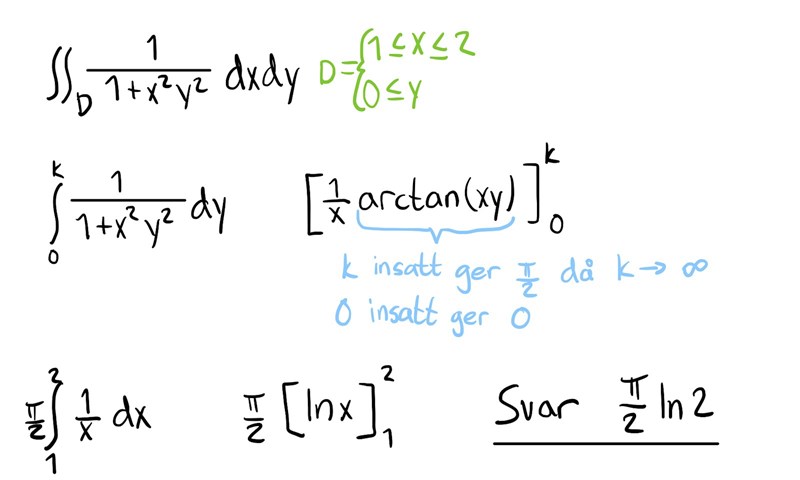 ∬_D 1/(1+x²y²) dxdy D={1≤x≤2
0≤y
∫_0^k 1/(1+x²y²) dy [1/x arctan(xy)]_0^k
k insatt ger π/2 då k→∞
0 insatt ger 0
π/2 ∫_1^2 1/x dx π/2 [ln x]_1^2 Svar π/2 ln 2